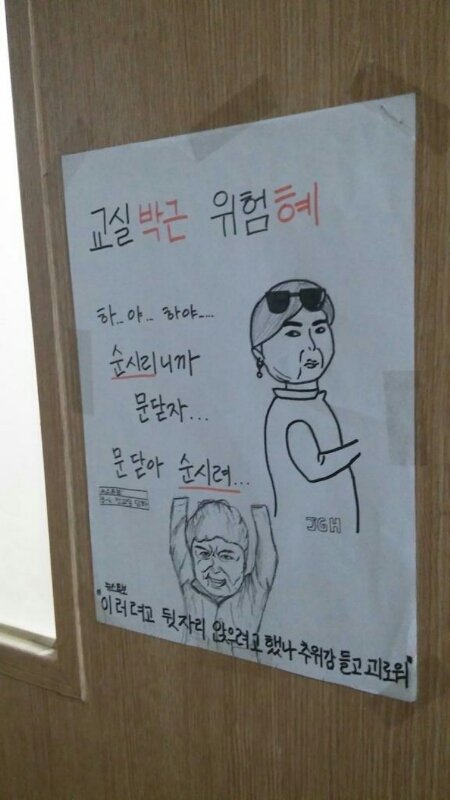 교실 박근 위험 혜
하..야.. 하야....
순시리니까
문닫자...
문닫아 순시려...
JGH
뉴스특보
"이러려고 뒷자리 앉으려고 했나 추위감 들고 괴로워"